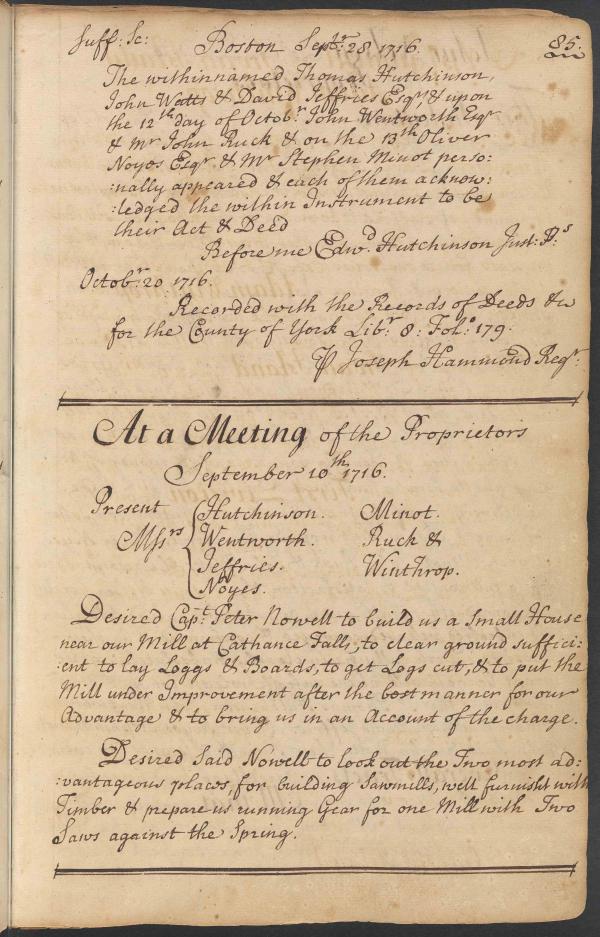 Suff: Sc: Boston Septr. 28 1716. 85.
The withinnamed Thomas Hutchinson,
John Watts & David Jeffries Esqrs & upon
the 12th day of Octobr. John Wentworth Esqr
& Mr John Ruck & on the 13th Oliver
Noyes Esqr. & Mr Stephen Minot perso:
:nally appeared & each of them acknow:
:ledged the within Instrument to be
their Act & Deed
Before me Edwd. Hutchinson Just: Ps:
Octobr. 20 1716.
Recorded with the Records of Deeds &c
for the County of York Libr. 8: Folo: 179.
℔ Joseph Hammond Regr.
At a Meeting of the Proprietors
September 10th 1716.
Present
Messrs
Hutchinson. Minot.
Wentworth. Ruck &
Jeffries. Winthrop.
Noyes.
Desired Capt. Peter Nowell to build us a Small House
near our Mill at Cathance Falls, to clear ground suffici:
:ent to lay Loggs & Boards, to get Logs cut, & to put the
Mill under Improvement after the best manner for our
Advantage & to bring us in an Account of the charge.
Desired Said Nowell to look out the Two most ad:
:vantageous places, for building Sawmills, well furnisht with
Timber & prepare us running Gear for one Mill with Two
Saws against the Spring.